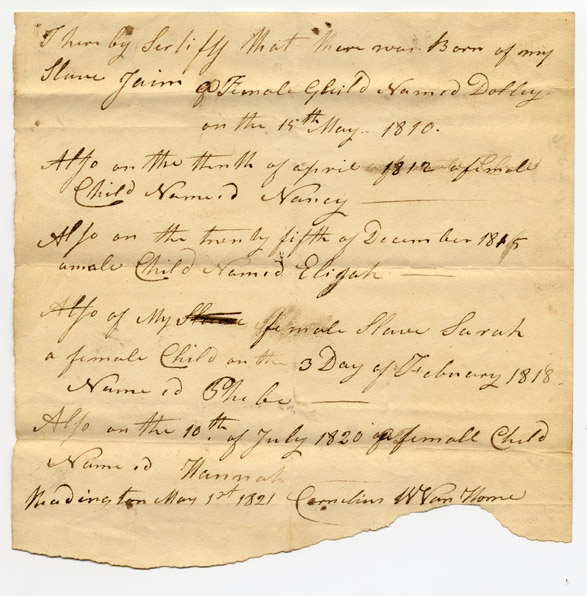 I here by Sertiffy that there was Born of my
Slave Jain a Female Child Named Dolley
on the 15th May. 1810.
Also on the tenth of april 1812 a female
Child Name,d Nancy
Also on the twenty fifth of December 1815
a male Child Named Elijah
Also of My female Slave Sarah
a female Child on the 3 Day of February 1818
Name,d Phebe
Also on the 10th of July 1820 a female Child
Name,d Hannah
Readington May 1st 1821 Cornelius W Van Horne